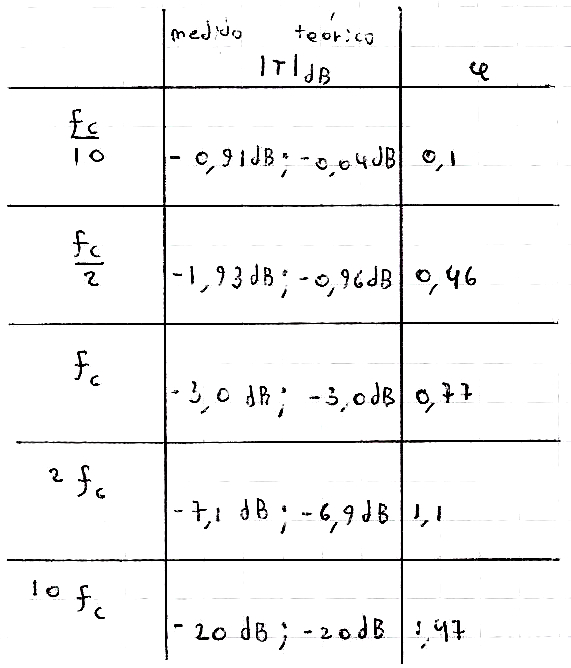 medido teórico
|T|dB φ
fc
10
- 0,91dB ; -0,04dB 0,1
fc
2
-1,93dB ; -0,96dB 0,46
fc
-3,0 dB ; -3,0dB 0,77
2 fc
-7,1 dB ; -6,9dB 1,1
10 fc
- 20 dB ; -20dB 1,47